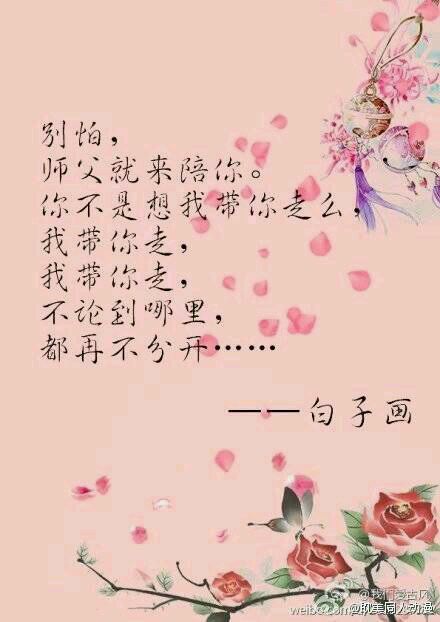 别怕，
师父就来陪你。
你不是想我带你走么，
我带你走，
我带你走，
不论到哪里，
都再不分开……
——白子画
@我们爱古风
weibo.com
@耽美同人动漫